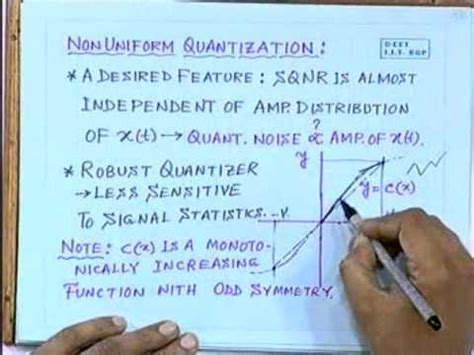 NONUNIFORM QUANTIZATION:
D CET
I.I.T. KGP
* A DESIRED FEATURE: SQNR IS ALMOST
INDEPENDENT OF AMP. DISTRIBUTION
?
OF x(t) → QUANT. NOISE ∝ AMP. OF x(t).
* ROBUST QUANTIZER
→ LESS SENSITIVE
TO SIGNAL STATISTICS.
y
y = c(x)
-V
NOTE: C(x) IS A MONOTO-
NICALLY INCREASING
FUNCTION NITH ODD SYMMETRY.